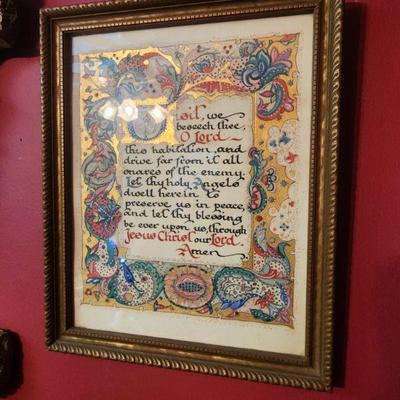 Visit, we
beseech thee,
O Lord
this habitation, and
drive far from it all
snares of the enemy
Let thy holy Angels
dwell herein to
preserve us in peace,
and let thy blessing
be ever upon us, through
Jesus Christ our Lord
Amen